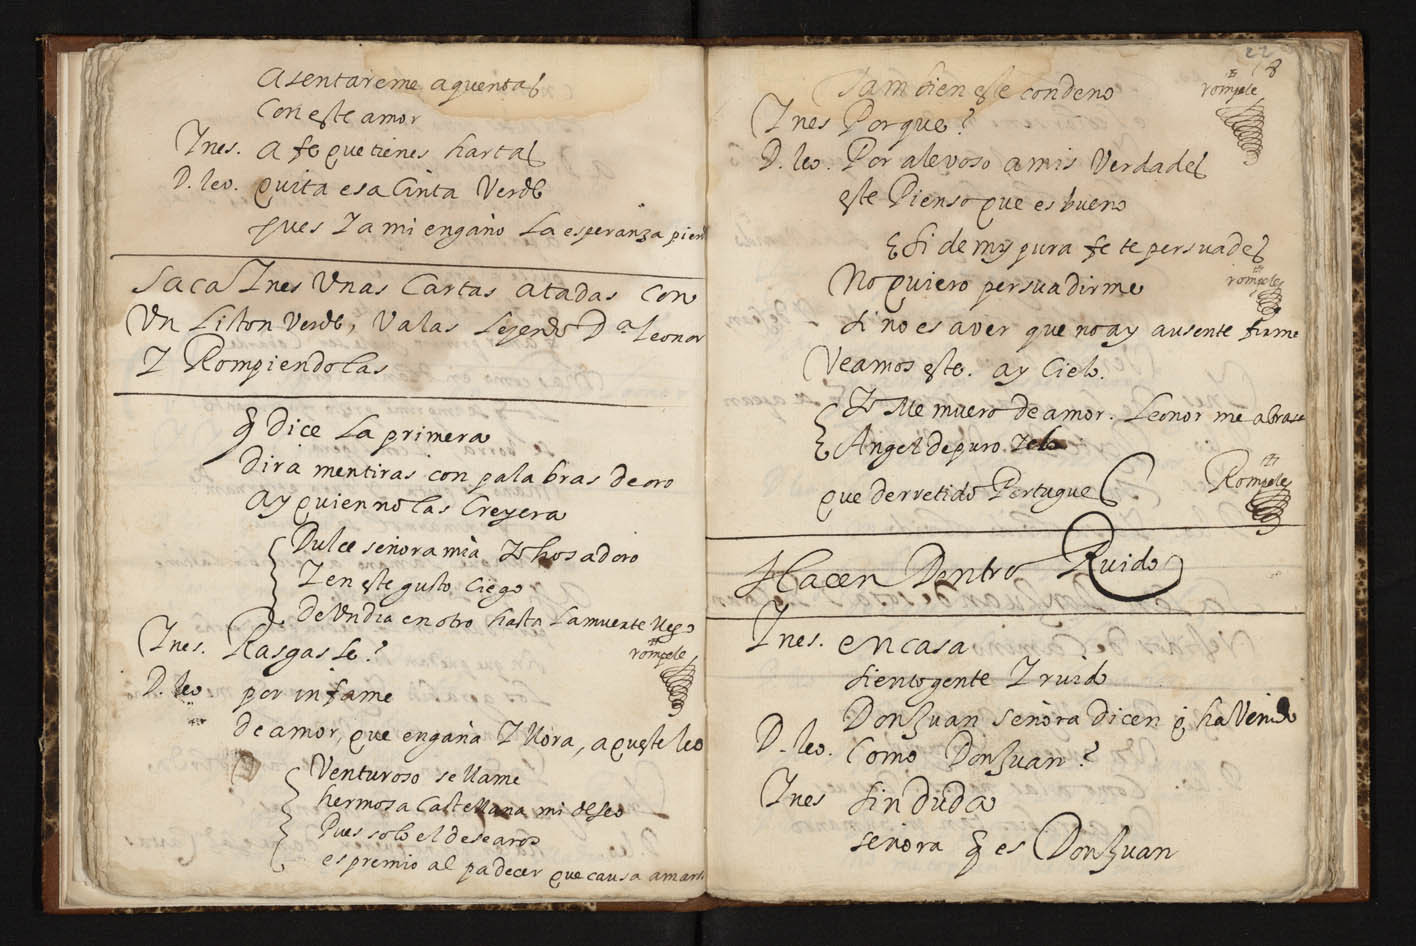 asentareme a quentas
con este amor
Ines. a fe que tienes hartas
D. leo. quita esa Cinta Verde
pues Ia mi engaño La esperanza pierd
Saca Ines Vnas Cartas atadas con
Vn Liston Verde, Valas Leyendo D.ª Leonor
I Rompiendolas
q̃ dice La primera
dirà mentiras con palabras de oro
ay quien no las Creyera
Dulce señora mia Io hos adoro
I en este gusto Ciego
de Vn dia en otro hasta La muerte llego
Ines. Rasgaste?
rompele
D. leo por infame
de amor, que engaña I llora, aqueste leo
Venturoso se llame
hermosa Castellana mi deseo
Pues solo el desearos
es premio al padecer que causa amaros
22
18
Tambien este condeno
rompele
Ines Porque?
D. leo. Por alevoso a mis Verdades
este Pienso que es bueno
Si de my pura fe te persuades
No quiero persuadirme
rompele
si no es a ver que no ay ausente firme
Veamos este. ay Cielo.
Io Me muero de amor. Leonor me abrasa
Angel de puro
que derretido Portugues
Rompele
Hacen Dentro Ruido
Ines. en casa
siento gente I ruido
Don Juan señora dicen q̃ ha Venido
D. leo. Como Don Juan?
Ines sin duda
señora q̃ es Don Juan